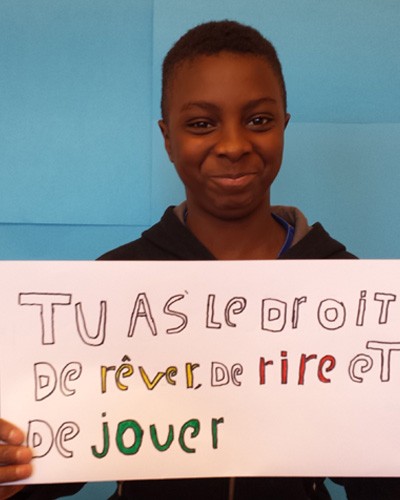 TU AS LE DROIT
DE rêver, DE rire ET
DE jouer